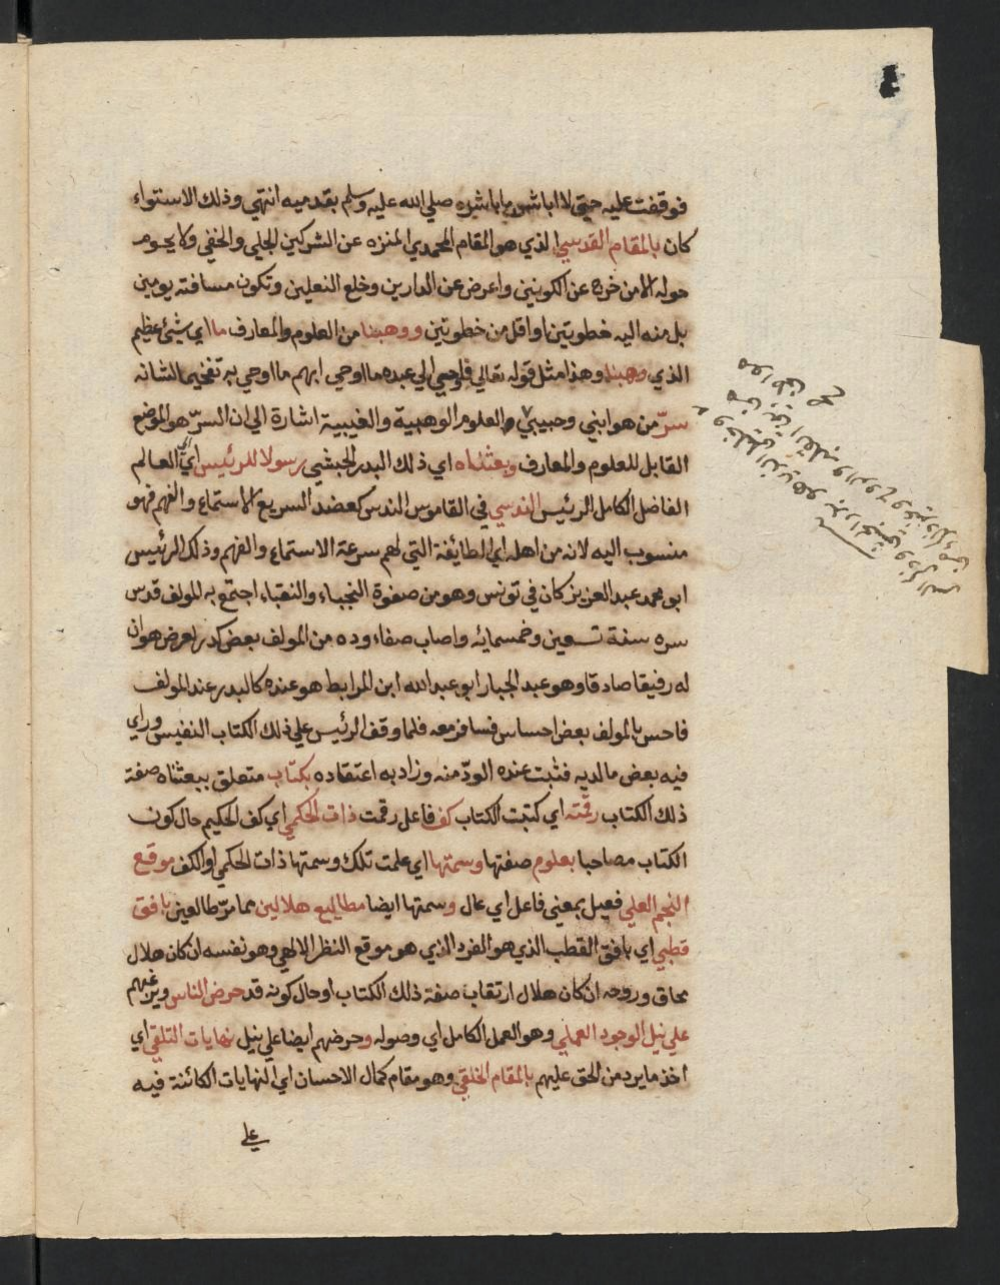 فوقفت عليه حيتي لا اباشر ما باشره صلي الله عليه وسلم بقدميه انتهي وذلك الاستواء
كان بالمقام القدسي الذي هو المقام المحمدي المنزه عن الشركين الجلي والخفي ولا يحوم
حوله الا من خرج عن الكونين واعرض عن الدارين وخلع النعلين وتكون مسافته يومين
بل منه اليه خطوتين او اقل من خطوتين ووهبنا من العلوم والمعارف ما اي شيئ عظيم
الذي وهبنا وهذا مثل قوله تعالي فاوحي الي عبده ما اوحي ابهم ما اوحي به تفخيما لشانه
سرّ من هو ابني وحبيبي والعلوم الوهبية والغيبية اشارة الي ان السرّ هو الموضع
القابل للعلوم والمعارف وبعثناه اي ذلك البدر الحبشي رسولا للرئيس اي العالم
الفاضل الكامل الرئيس الندسي في القاموس الندس كعضد السريع الاستماع والفهم فهو
منسوب اليه لانه من اهله اي الطائفة التي لهم سرعة الاستماع والفهم وذلك الرئيس
ابو محمد عبد العزيز كان في تونس وهو من صفوة النجباء والنقباء اجتمع به المولف قدس
سره سنة تسعين وخمسمائه واصاب صفاء وده من المولف بعض كدر لعرض هو ان
له رفيقا صادقا وهو عبد الجبار ابو عبد الله ابن المرابط هو عنده كالبدر عند المولف
فاحس بالمولف بعض احساس فسافر معه فلما وقف الرئيس علي ذلك الكتاب النفيس وراي
فيه بعض ما لديه فثبت عنده الودّ منه وزاد به اعتقاده بكتاب متعلق ببعثناه صفة
ذلك الكتاب رقمته اي كتبت الكتاب كف فاعل رقمت ذات الحكمي اي كف الحكيم حال كون
الكتاب مصاحبا بعلوم صفتها وسمتها اي علمت تلك وسمتها ذات الحكمي او الكف موقع
النجم العلي فعيل بمعني فاعل اي عال وسمتها ايضا مطاليع هلالين مما مرّ طالعين بافق
قطبي اي بافق القطب الذي هو الفرد الذي هو موقع النظر الالهي وهو نفسه ان كان هلال
محاق وروحه ان كان هلال ارتقاب صفة ذلك الكتاب او حال كونه قد حرض الناس ويرغبهم
علي نيل الوجود العملي وهو العمل الكامل اي وصوله وحرضهم ايضا علي نيل نهايات التلقي اي
اخذ ما يرد من الحق عليهم بالمقام الخلقي وهو مقام كمال الاحسان اي النهايات الكائنة فيه
علي